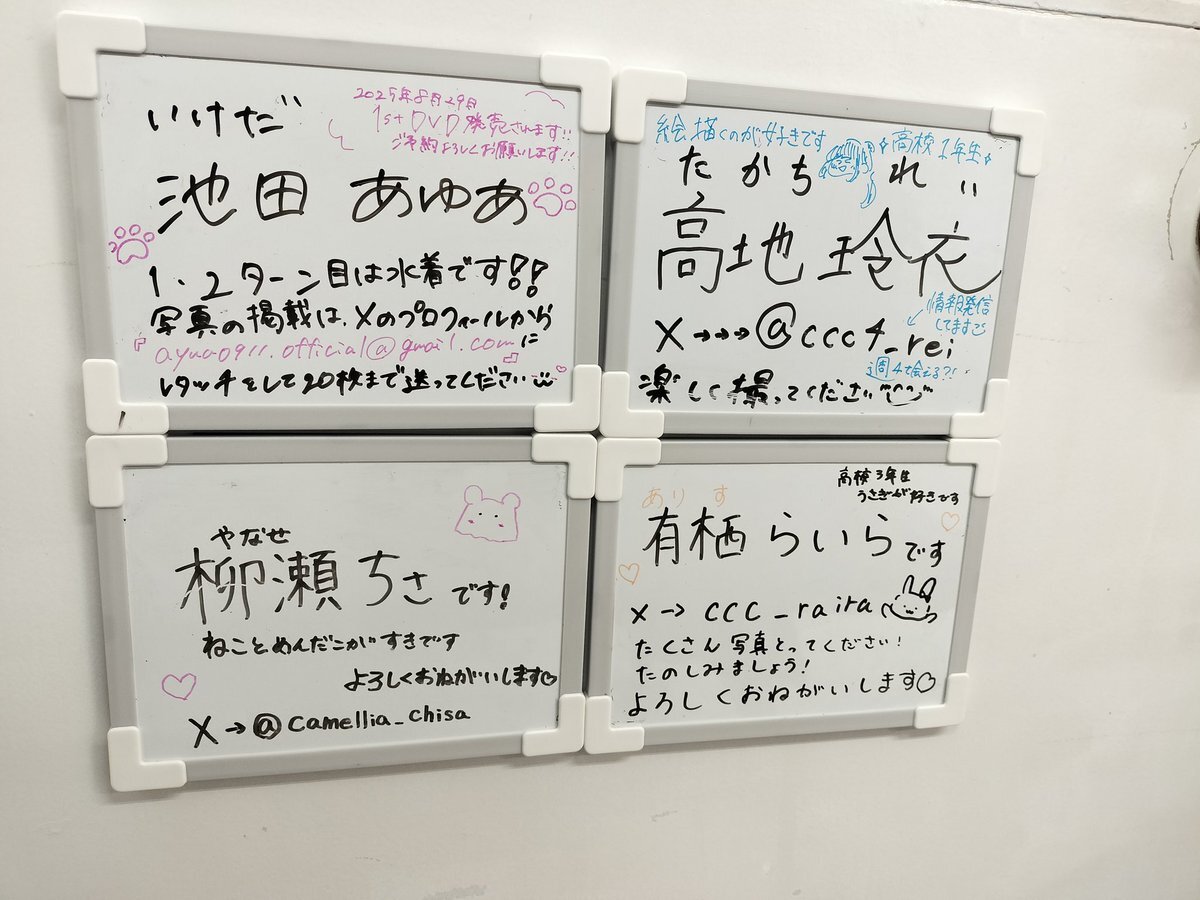 いけだ
2025年8月29日
1st DVD発売されます!!
ご予約よろしくお願いします!!
池田 あゆあ
1、2ターン目は水着です!!
写真の掲載は、Xのプロフィールから
『ayua0911.official@gmail.com』に
レタッチをして20枚まで送ってください
絵描くのが好きです
高校1年生
たかち れい
高地 玲衣
X→→→@ccc4_rei
情報発信
してます
週4で会える?!
楽しく撮ってください
やなせ
柳瀬 ちさ です!
ねことめんだこがすきです
よろしくおねがいします♡
X→@camellia_chisa
高校3年生
うさぎが好きです
ありす
有栖 らいらです
X→ccc_raira
たくさん写真とってください!
たのしみましょう!
よろしくおねがいします♡